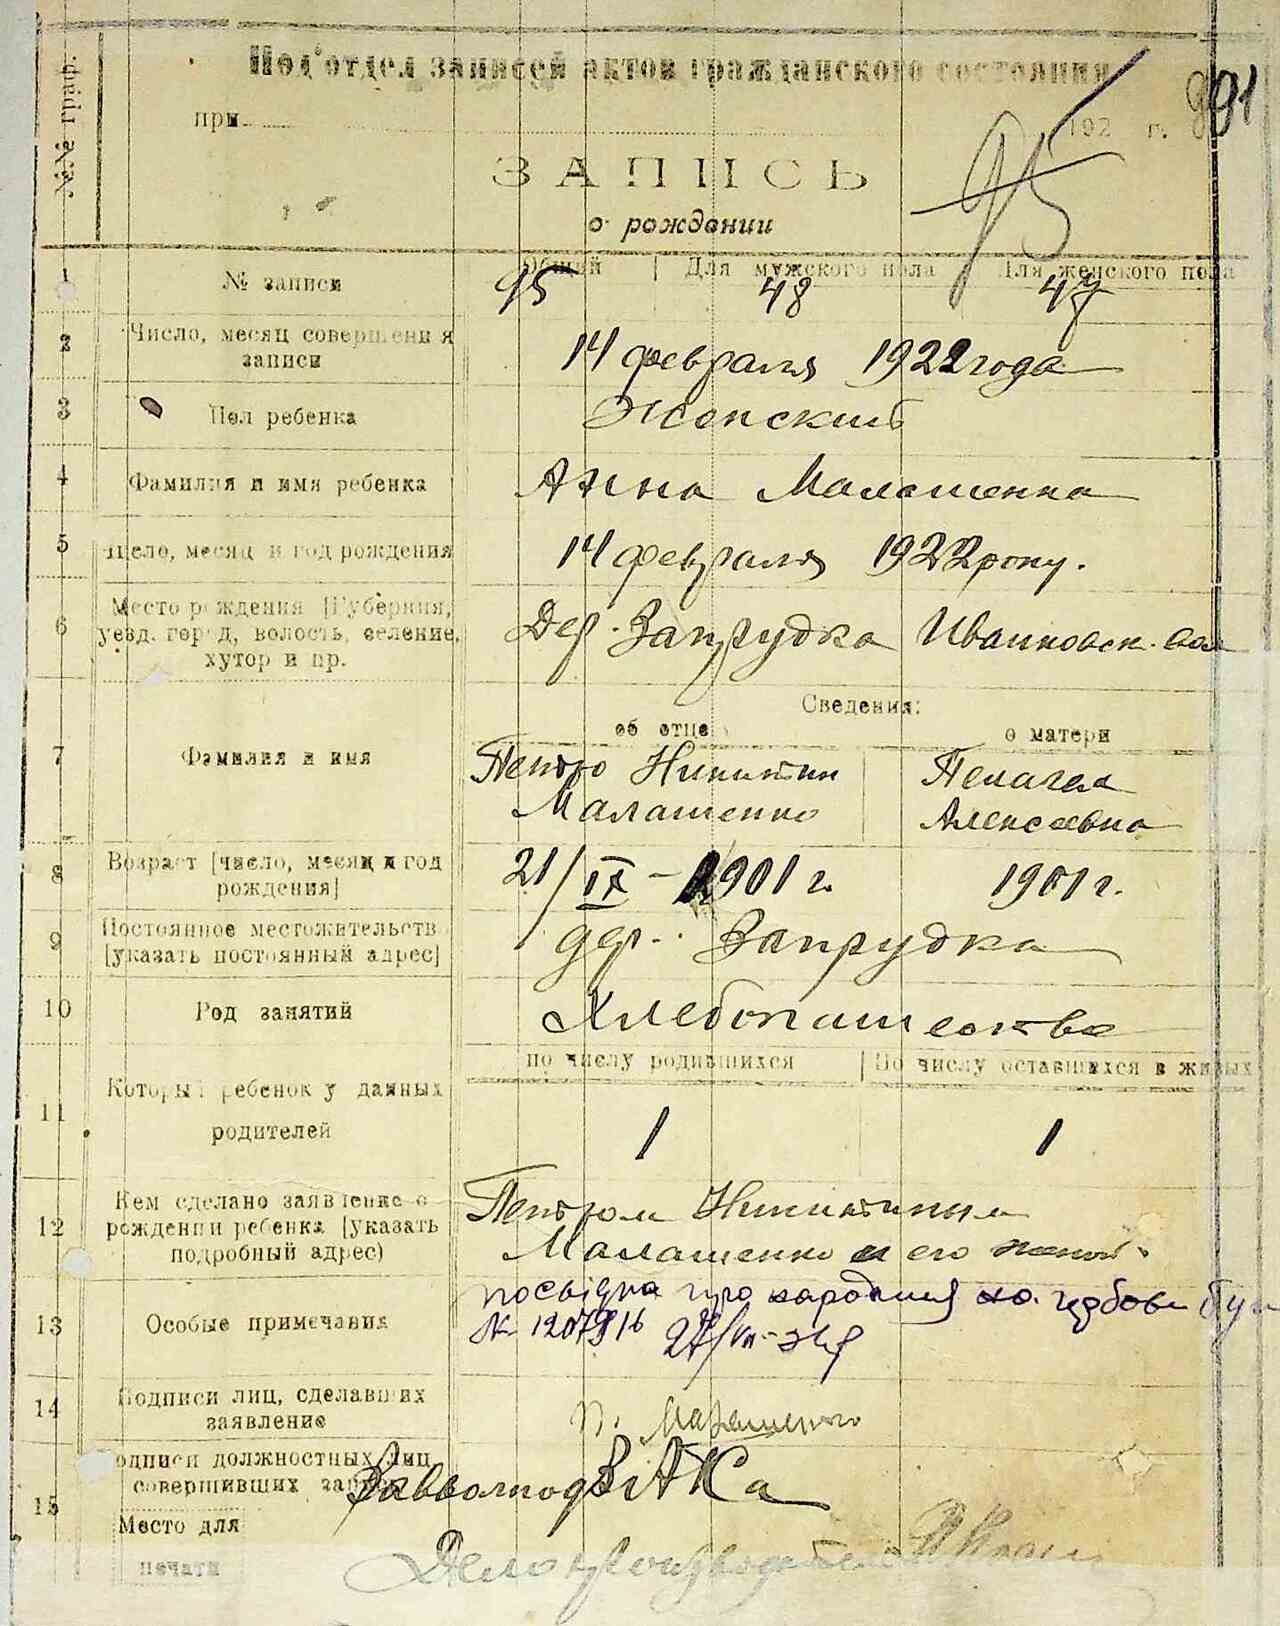 Под'отдел записей актов гражданского состояния
№№ граф.
при 192 г. 91
95
ЗАПИСЬ
о рождении
Общий Для мужского пола Для женского пола
1 № записи 95 48 47
2 Число, месяц совершения записи 14 февраля 1922 года
3 Пол ребенка Женский
4 Фамилия и имя ребенка Анна Малашенко
5 Число, месяц и год рождения 14 февраля 1922 року.
6 Место рождения [Губерния, уезд, город, волость, селение, хутор и пр. Дер. Запрудка Иванковск. вол
Сведения:
об отце о матери
7 Фамилия и имя Петро Никитин Пелагея
Малашенко Алексеевна
8 Возраст [число, месяц и год рождения] 21/IX - 1901 г. 1901 г.
9 Постоянное местожительство [указать постоянный адрес] дер. Запрудка
10 Род занятий Хлебопашество
по числу родившихся По числу оставшихся в живых
11 Который ребенок у данных родителей 1 1
12 Кем сделано заявление о рождении ребенка [указать подробный адрес) Петром Никитиным
Малашенко и его женой.
13 Особые примечания посвідка про народження
№ 1207916
14 Подписи лиц, сделавших заявление П. Малашенко
15 Подписи должностных лиц, совершивших запись ЗавволподЗАГСа
Место для
печати
Делопроизводитель